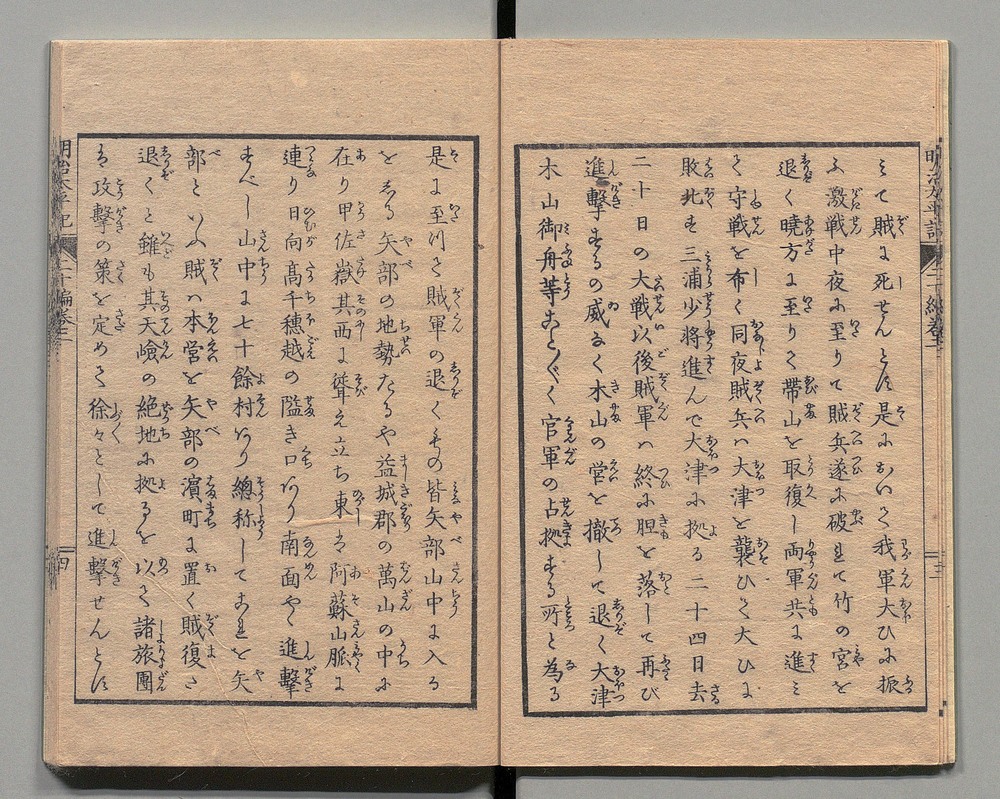 ミて賊に死せんとす是においてく我軍大ひに振
ふ激戦中夜に至りて賊兵遂に破れて竹の宮を
退く暁方に至りて帯山を取復し両軍共に進ミ
て守戦を布く同夜賊兵ハ大津を襲ひて大ひに
敗北す三浦少将進んで大津に拠る二十四日去
二十日の大戦以後賊軍ハ終に胆を落して再び
進撃するの威なく木山の営を撤して退く大津
木山御舟等こと〴〵く官軍の占拠する所と為る
是に至りて賊軍の退くもの皆矢部山中に入る
を 矢部の地勢たるや益城郡の萬山の中に
在り甲佐嶽其西に聳え立ち東は阿蘇山脈に
連り日向高千穂越の隘き口あり南面やゝ進撃
すべし山中に七十餘村あり總称してこれを矢
部といふ賊ハ本営を矢部の濱町に置く賊復さ
退くと雖も其天嶮の絶地に拠るを以て諸旅團
は攻撃の策を定めて徐々として進撃せんとす
明治太平記
二十編巻之二
四